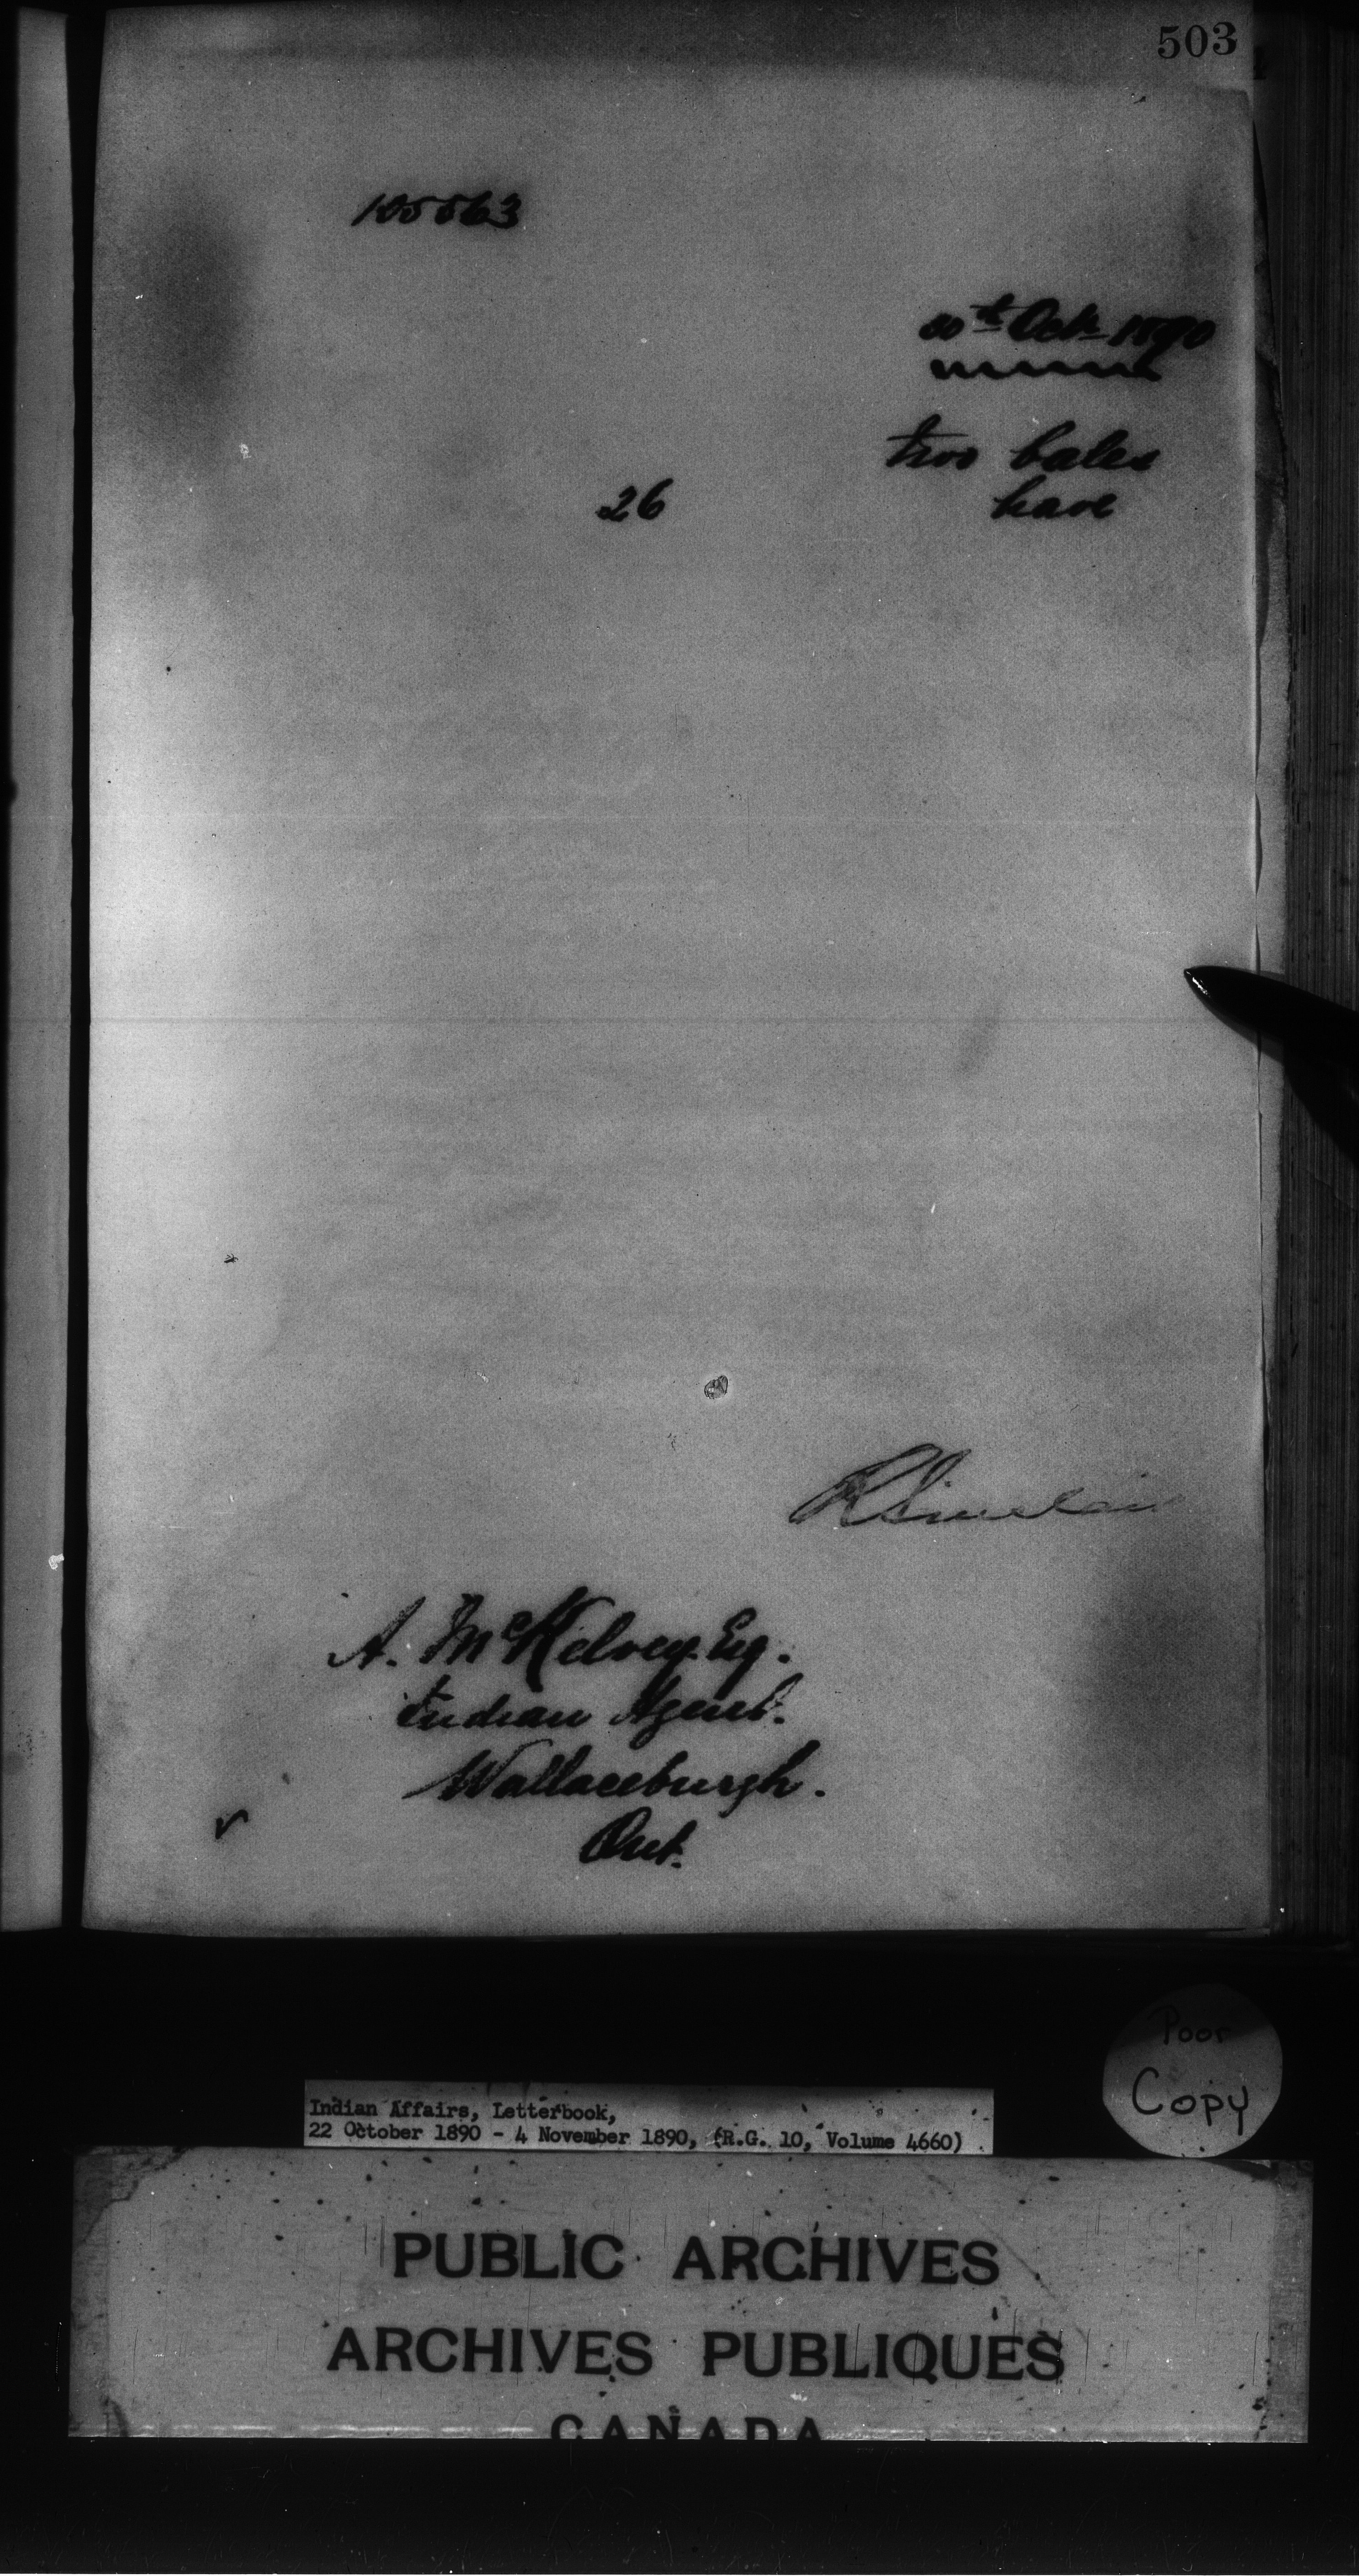 503
105563
30th Oct 1890
two bales
26 have
R Sinclair
A. McKelvey Esq.
Indian Agent.
Wallaceburgh.
Ont.
Poor
Copy
Indian Affairs, Letterbook,
22 October 1890 - 4 November 1890, (R.G. 10, Volume 4660)
PUBLIC ARCHIVES
ARCHIVES PUBLIQUES
CANADA